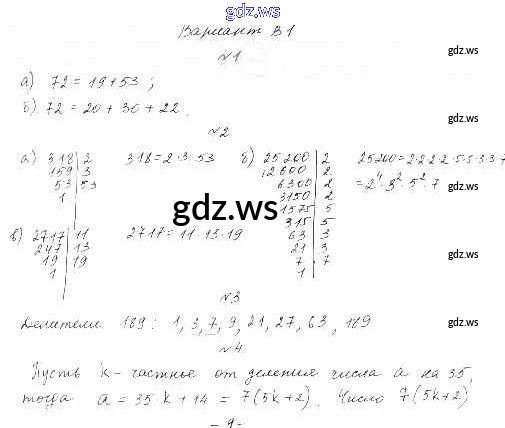 gdz.ws
Вариант В1
№1
gdz.ws
а) 72 = 19 + 53 ;
б) 72 = 20 + 30 + 22 .
gdz.ws
№2
а) 318 | 2    318 = 2 · 3 · 53    б) 25200 | 2    25200 = 2·2·2·2·5·5·3·3·7
159 | 3    12600 | 2    = 2⁴ · 3² · 5² · 7
53 | 53    6300 | 2    gdz.ws
1    3150 | 2
gdz.ws    1575 | 5
в) 2717 | 11    2717 = 11 · 13 · 19    315 | 5
247 | 13    63 | 3
19 | 19    21 | 3    gdz.ws
1    7 | 7
1
№3
Делители 189 : 1, 3, 7, 9, 21, 27, 63, 189
gdz.ws
№4
Пусть k – частное от деления числа a на 35,
gdz.ws
тогда a = 35k + 14 = 7(5k+2). Число 7(5k+2)
- 9 -